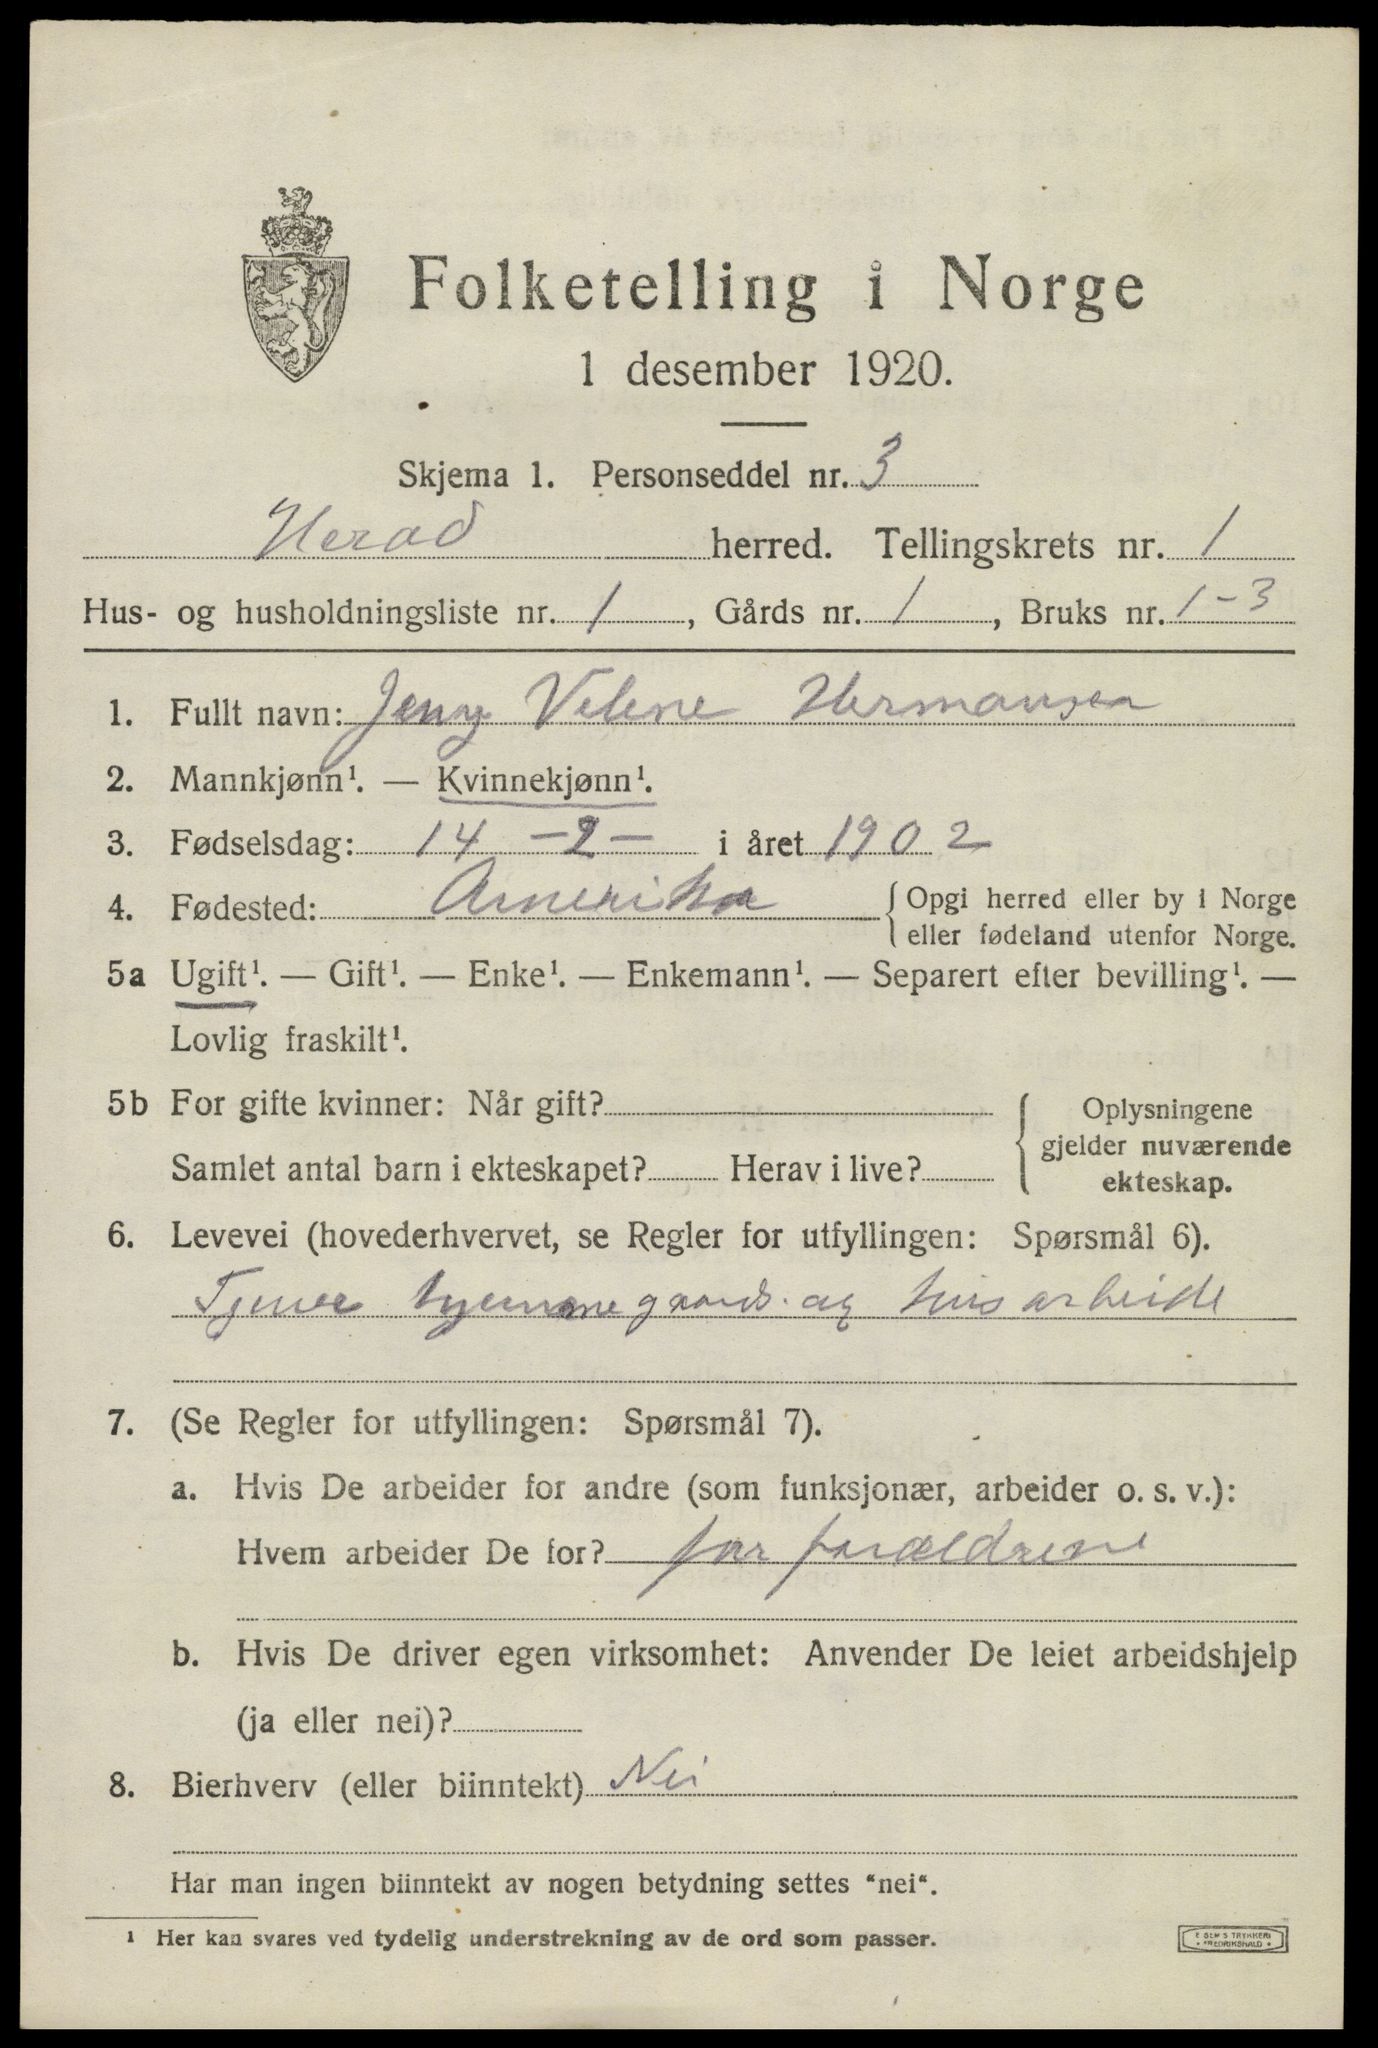 Folketelling i Norge
1 desember 1920.
Skjema 1. Personseddel nr. 3
Herad herred. Tellingskrets nr. 1
Hus- og husholdningsliste nr. 1, Gårds nr. 1, Bruks nr. 1-3
1. Fullt navn: Jeny Velene Hermansen
2. Mannkjønn¹. — Kvinnekjønn¹.
3. Fødselsdag: 14 - 2 - i året 1902
4. Fødested: Amerika { Opgi herred eller by i Norge
eller fødeland utenfor Norge.
5a Ugift¹. — Gift¹. — Enke¹. — Enkemann¹. — Separert efter bevilling¹. —
Lovlig fraskilt¹.
5b For gifte kvinner: Når gift? { Oplysningene
gjelder nuværende
Samlet antal barn i ekteskapet? Herav i live? ekteskap.
6. Levevei (hovederhvervet, se Regler for utfyllingen: Spørsmål 6).
Tjener hjemme gaards. og husarbeide
7. (Se Regler for utfyllingen: Spørsmål 7).
a. Hvis De arbeider for andre (som funksjonær, arbeider o. s. v.):
Hvem arbeider De for? for forældrene
b. Hvis De driver egen virksomhet: Anvender De leiet arbeidshjelp
(ja eller nei)?
8. Bierhverv (eller biinntekt) Nei
Har man ingen biinntekt av nogen betydning settes "nei".
¹ Her kan svares ved tydelig understrekning av de ord som passer.
E SEM'S TRYKKERI
FREDRIKSHALD